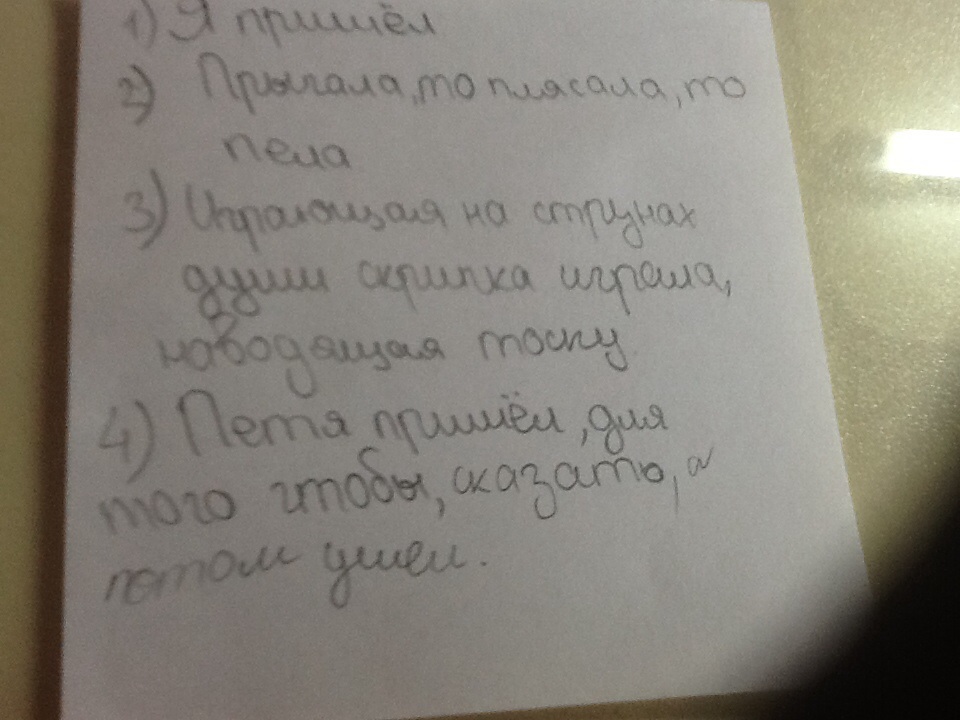 1) Я пришёл
2) Прыгала, то плясала, то
пела
3) Играющая на струнах
души скрипка играла,
наводящая тоску
4) Петя пришёл, для
того чтобы, сказать, а
потом ушел.